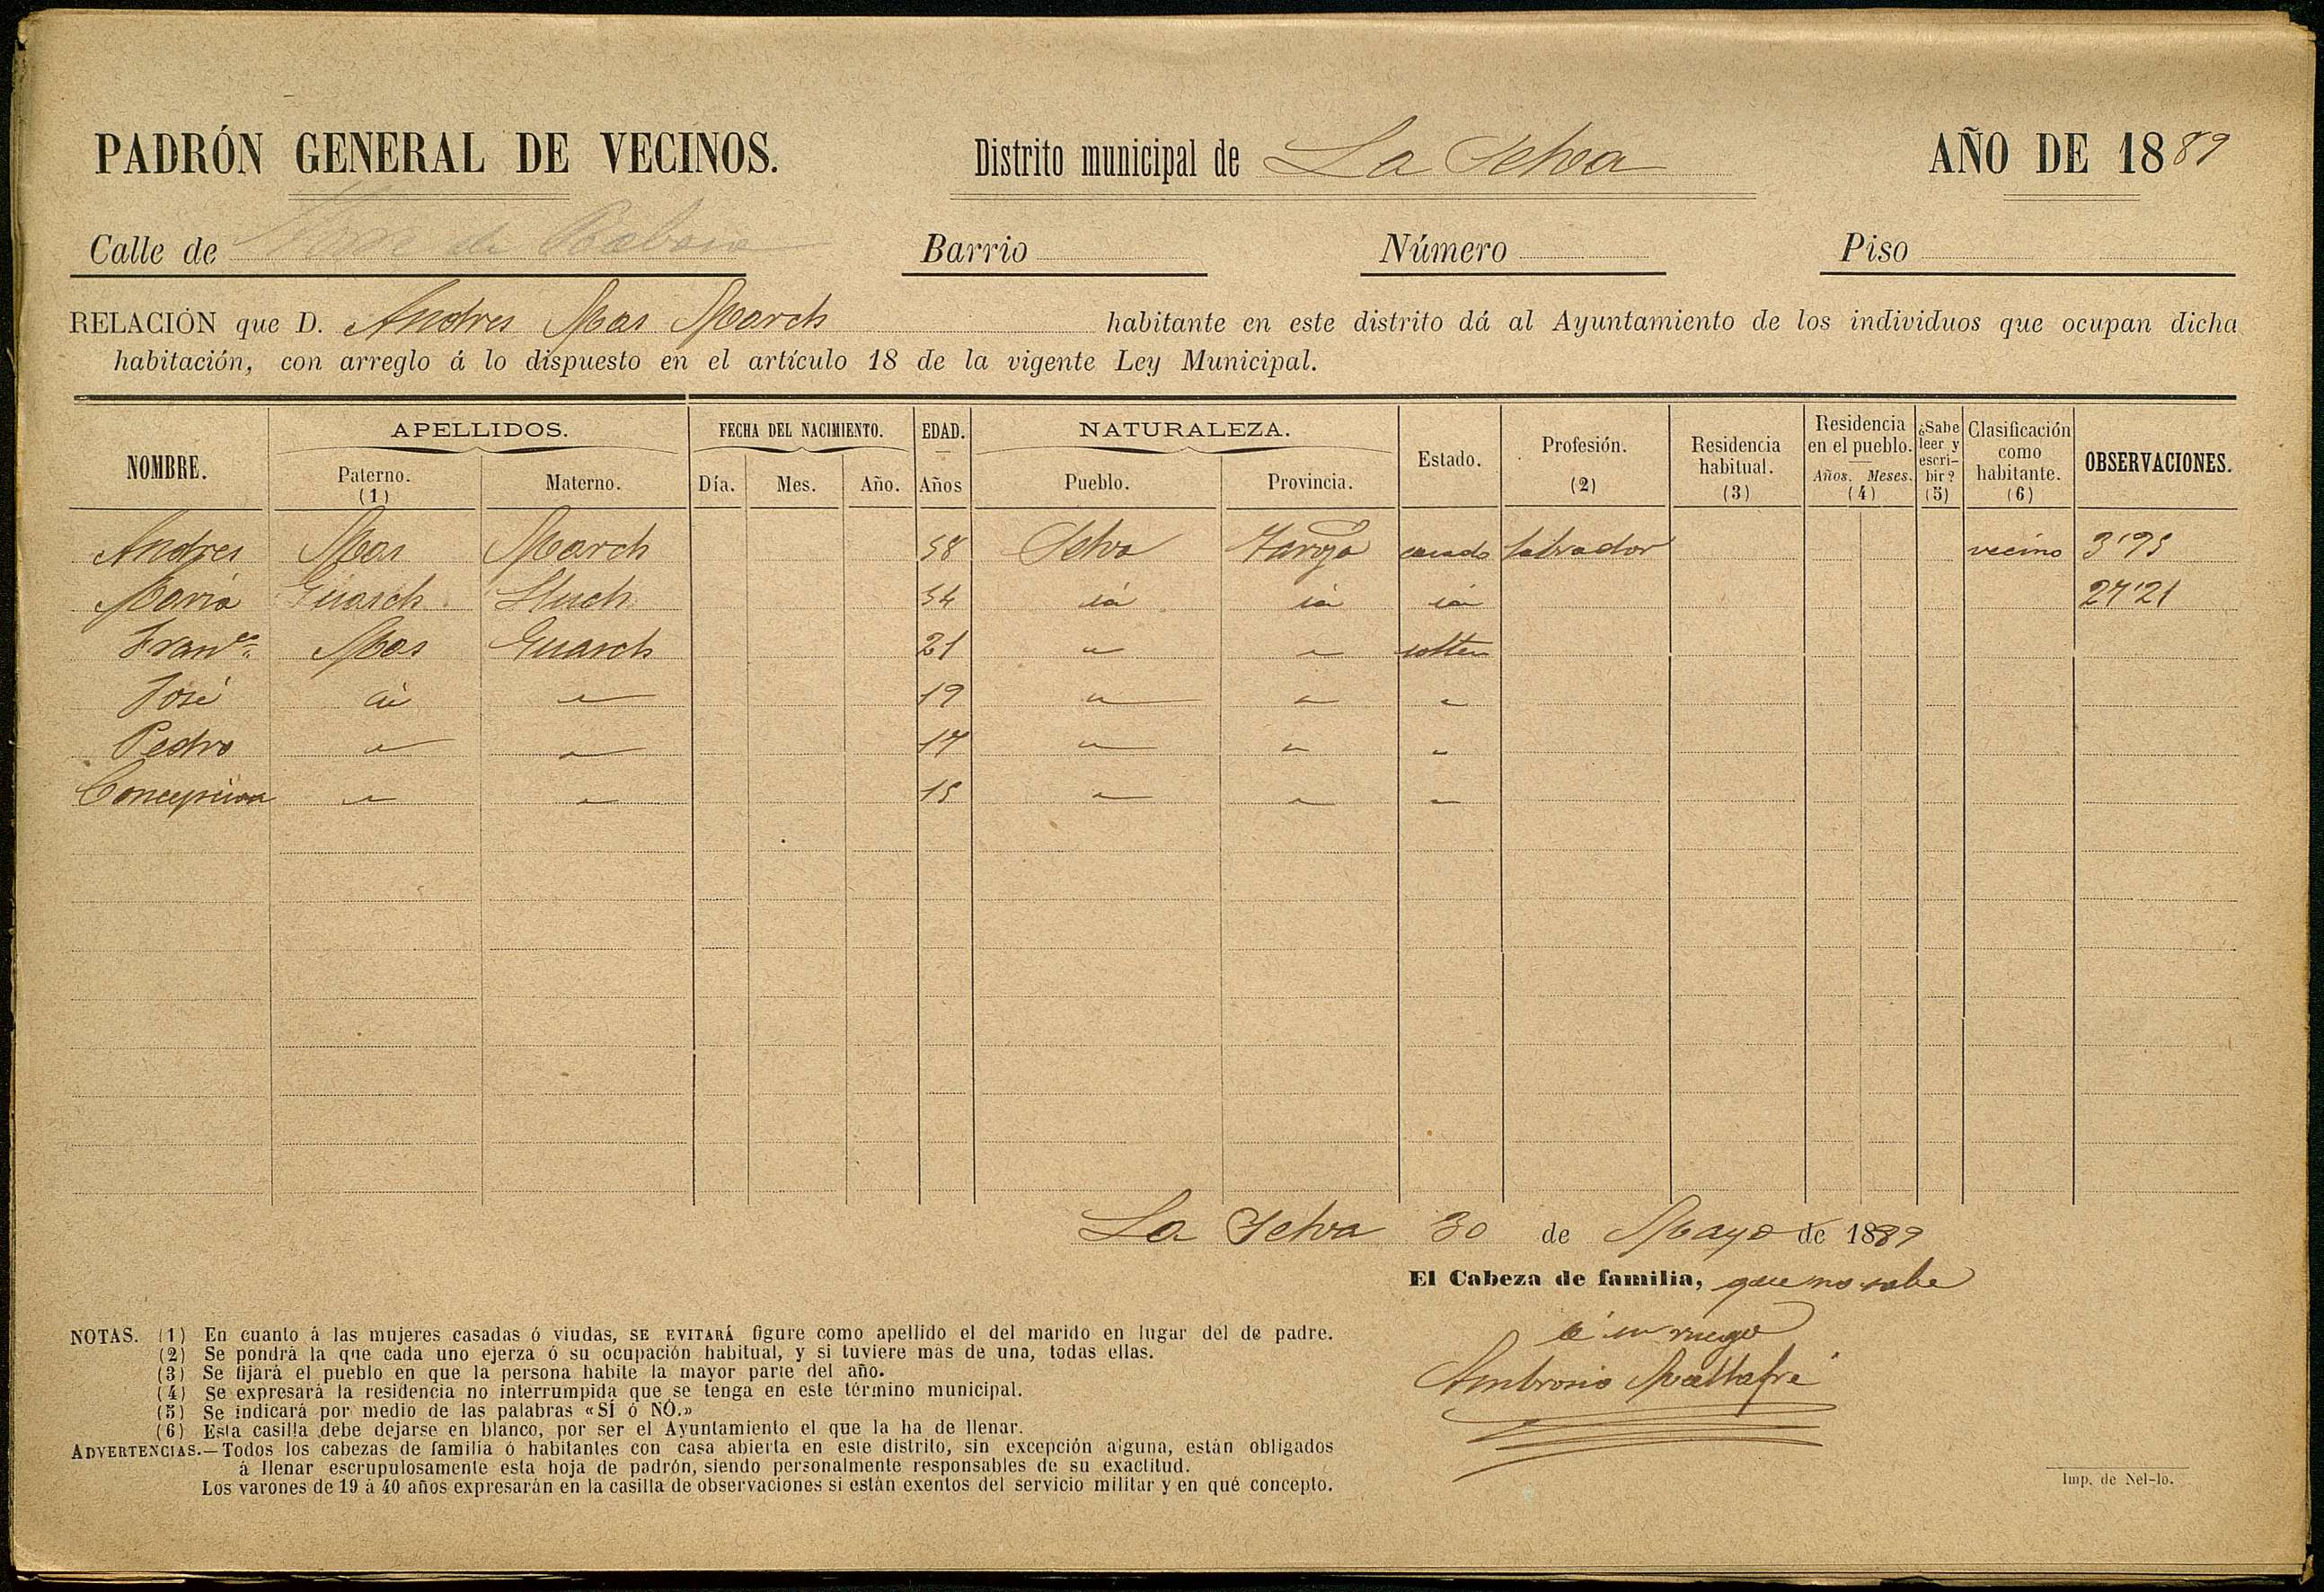 PADRÓN GENERAL DE VECINOS. Distrito municipal de La Selva AÑO DE 1889
Calle de de Barrio Número Piso
RELACIÓN que D. Andres Mas March habitante en este distrito dá al Ayuntamiento de los individuos que ocupan dicha
habitación, con arreglo á lo dispuesto en el artículo 18 de la vigente Ley Municipal.
NOMBRE. APELLIDOS. Paterno. (1) Materno. FECHA DEL NACIMIENTO. Día. Mes. Año. EDAD. Años NATURALEZA. Pueblo. Provincia. Estado. Profesión. (2) Residencia habitual. (3) Residencia en el pueblo. Años. Meses. (4) ¿Sabe leer y escribir? (5) Clasificación como habitante. (6) OBSERVACIONES.
Andres Mas March 58 Selva Tarrga casado labrador vecino 3'95
Maria Guasch Lluch 54 id id id 27'21
Franco Mas Guasch 21 " " solter
José id " 19 " " "
Pedro " " 17 " " "
Concepcion " " 15 " " "
La Selva 30 de Mayo de 1889
El Cabeza de familia, que no sabe
á su ruego
Ambrosio Mallafré
NOTAS. (1) En cuanto á las mujeres casadas ó viudas, SE EVITARÁ figure como apellido el del marido en lugar del de padre.
(2) Se pondrá la que cada uno ejerza ó su ocupación habitual, y si tuviere más de una, todas ellas.
(3) Se fijará el pueblo en que la persona habite la mayor parte del año.
(4) Se expresará la residencia no interrumpida que se tenga en este término municipal.
(5) Se indicará por medio de las palabras «SÍ ó NÓ.»
(6) Esta casilla debe dejarse en blanco, por ser el Ayuntamiento el que la ha de llenar.
ADVERTENCIAS.—Todos los cabezas de familia ó habitantes con casa abierta en este distrito, sin excepción alguna, están obligados
á llenar escrupulosamente esta hoja de padrón, siendo personalmente responsables de su exactitud.
Los varones de 19 á 40 años expresarán en la casilla de observaciones si están exentos del servicio militar y en qué concepto.
Imp. de Nel-lo.